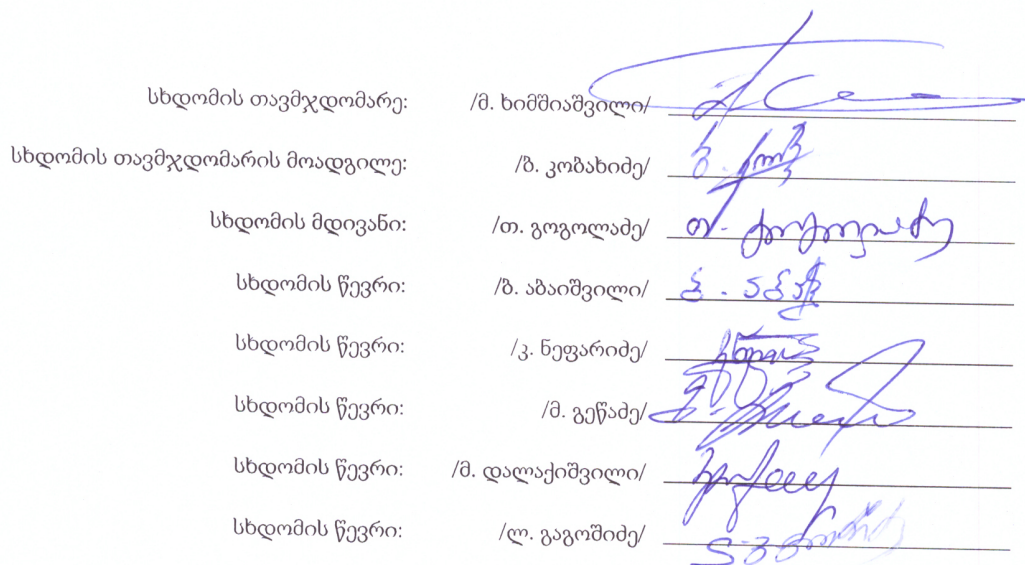 სხდომის თავმჯდომარე: /მ. ხიმშიაშვილი/
სხდომის თავმჯდომარის მოადგილე: /ბ. კობახიძე/
სხდომის მდივანი: /თ. გოგოლაძე/ თ. გოგოლაძე
სხდომის წევრი: /ბ. აბაიშვილი/
სხდომის წევრი: /კ. ნეფარიძე/
სხდომის წევრი: /მ. გეწაძე/
სხდომის წევრი: /მ. დალაქიშვილი/
სხდომის წევრი: /ლ. გაგოშიძე/